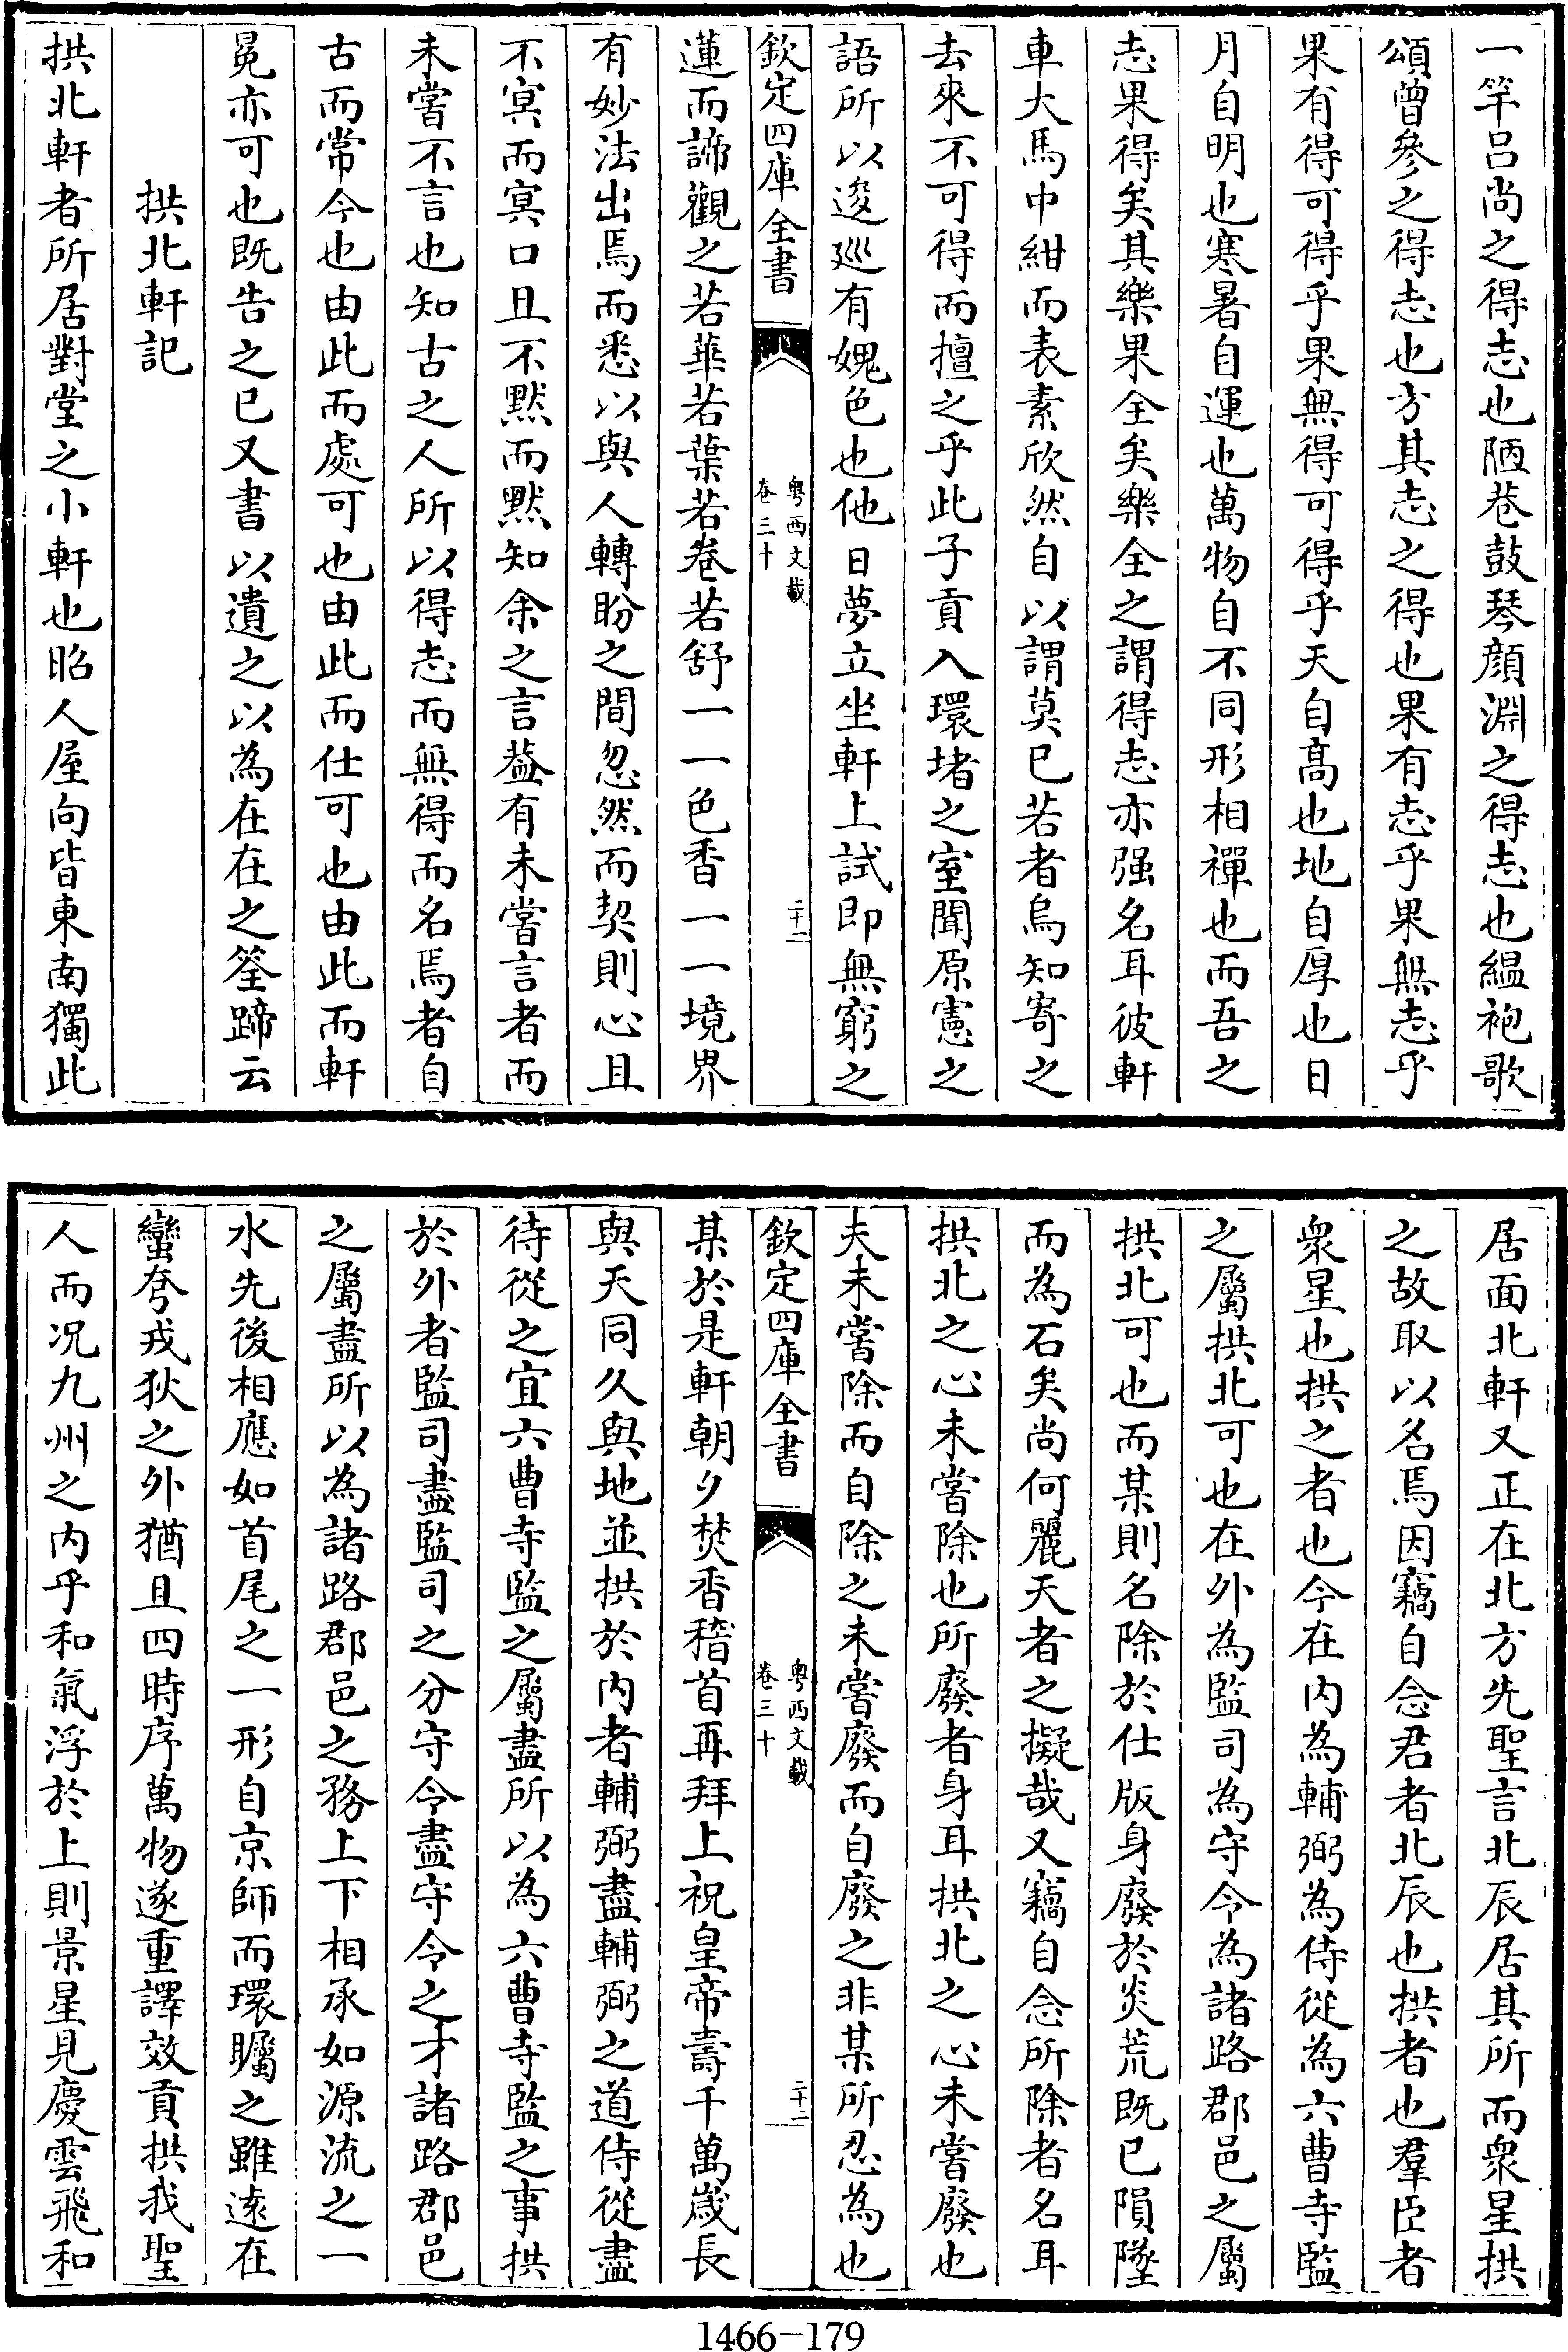 一竿吕尚之得志也陋巷鼓琴顔淵之得志也緼袍歌
頌曾參之得志也方其志之得也果有志乎果無志乎
果有得可得乎果無得可得乎天自髙也地自厚也日
月自明也寒暑自運也萬物自不同形相禪也而吾之
志果得矣其樂果全矣樂全之謂得志亦强名耳彼軒
車大馬中紺而表素欣然自以謂莫已若者烏知寄之
去來不可得而擅之乎此子貢入環堵之室聞原憲之
語所以逡廵有媿色也他日夢立坐軒上試即無窮之
欽定四庫全書
粤西文載
卷三十
二十一
蓮而諦觀之若華若葉若卷若舒一一色香一一境界
有妙法出焉而悉以與人轉盼之間忽然而契則心且
不㝠而㝠口且不黙而黙知余之言葢有未嘗言者而
未嘗不言也知古之人所以得志而無得而名焉者自
古而常今也由此而處可也由此而仕可也由此而軒
冕亦可也既告之已又書以遺之以為在在之筌蹄云
拱北軒記
拱北軒者所居對堂之小軒也昭人屋向皆東南獨此
居面北軒又正在北方先聖言北辰居其所而衆星拱
之故取以名焉因竊自念君者北辰也拱者也羣臣者
衆星也拱之者也今在内為輔弼為侍從為六曹寺監
之屬拱北可也在外為監司為守令為諸路郡邑之屬
拱北可也而某則名除於仕版身廢於炎荒既已隕墜
而為石矣尚何麗天者之擬哉又竊自念所除者名耳
拱北之心未嘗除也所廢者身耳拱北之心未嘗廢也
夫未嘗除而自除之未嘗廢而自廢之非某所忍為也
欽定四庫全書
粤西文載
卷三十
二十二
某於是軒朝夕焚香稽首再拜上祝皇帝壽千萬嵗長
與天同久與地並拱於内者輔弼盡輔弼之道侍從盡
待從之宜六曹寺監之屬盡所以為六曹寺監之事拱
於外者監司盡監司之分守令盡守令之才諸路郡邑
之屬盡所以為諸路郡邑之務上下相承如源流之一
水先後相應如首尾之一形自京師而環矚之雖逺在
蠻夸戎狄之外猶且四時序萬物遂重譯效貢拱我聖
人而况九州之内乎和氣浮於上則景星見慶雲飛和
1466-179